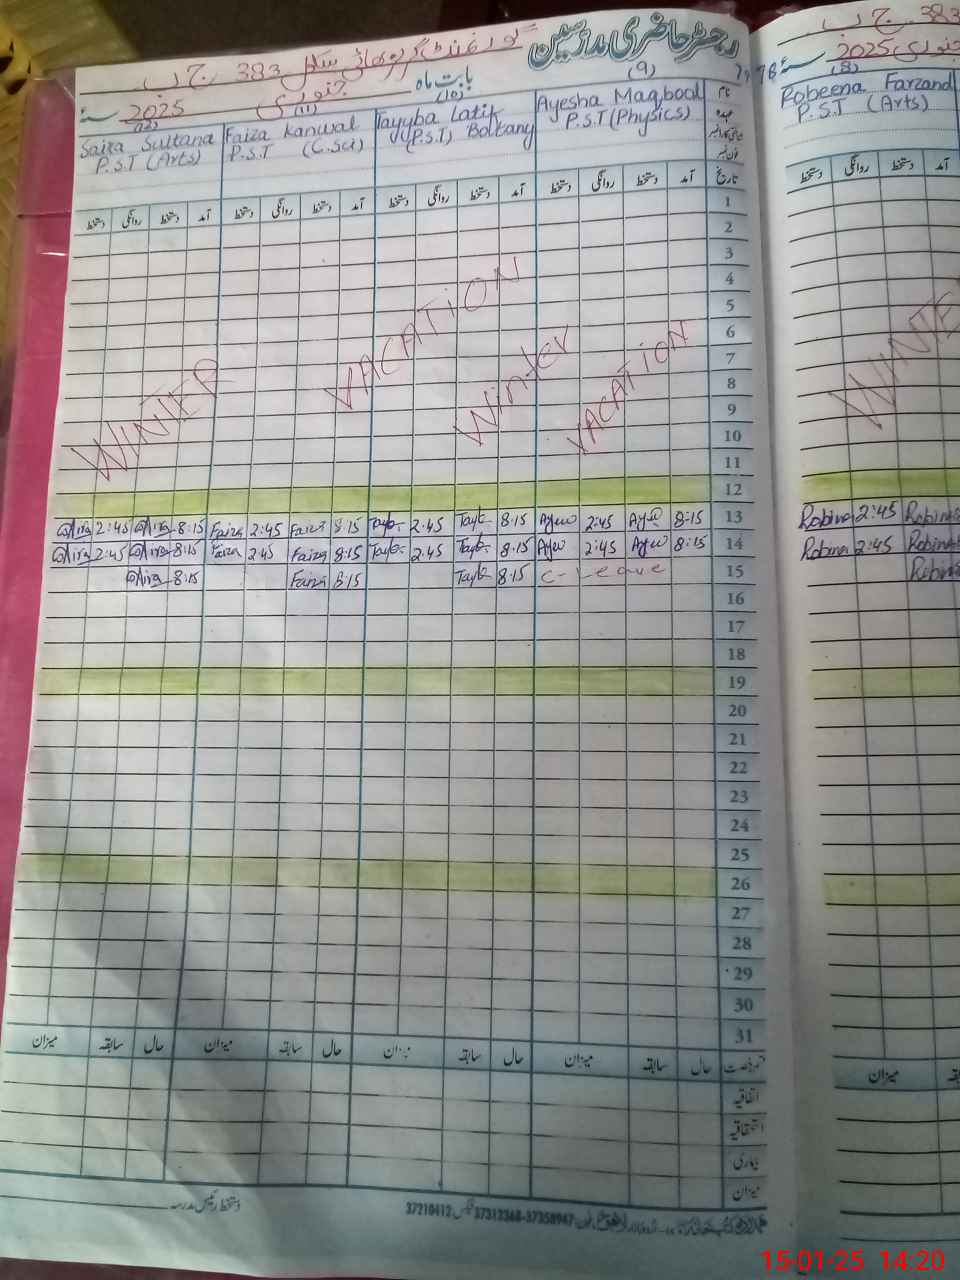 رجسٹر حاضری مدرسین
گورنمنٹ گرلز ہائی سکول 383 ج ب
بابت ماہ جنوری 2025 سنہ
(9) (10) (11) (12)
نام Ayesha Maqbool Tayyba Latif Faiza Kanwal Saira Sultana
عہدہ P.S.T (Physics) (P.S.T) Boltany P.S.T (C.Sci) P.S.T (Arts)
فون نمبر
تاریخ آمد دستخط روانگی دستخط آمد دستخط روانگی دستخط آمد دستخط روانگی دستخط آمد دستخط روانگی دستخط
1
2
3
4
5
6
7
8
9
10
11
WINTER VACATION Winter VACATION
12
13 8:15 Ayew 2:45 Ayew 8:15 Tayb 2:45 Tayb 8:15 Faiza 2:45 Faiza 8:15 2:45
14 8:15 Ayew 2:45 Ayew 8:15 Tayb 2:45 Tayb 8:15 Faiza 2:45 Faiza 8:15 2:45
15 C-leave 8:15 Tayb 8:15 Faiza 8:15
16
17
18
19
20
21
22
23
24
25
26
27
28
29
30
31
رخصت حال سابقہ میزان حال سابقہ میزان حال سابقہ میزان حال سابقہ میزان
اتفاقیہ
استحقاقیہ
بیماری
میزان
دستخط رئیس مدرسہ
37210412 فیکس 37312368-37358947
383 ج ب
جنوری 2025 سنہ
(8)
Robeena Farzand
P.S.T (Arts)
آمد دستخط روانگی دستخط
WINTE
Robina 2:45 Robina
Robina 2:45 Robina
Robina
میزان
15-01-25 14:20